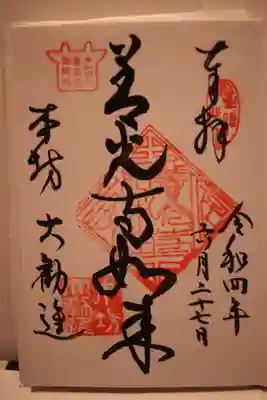 奉拝
令和四年
六月二十七日
善光寺如来
本坊 大勧進